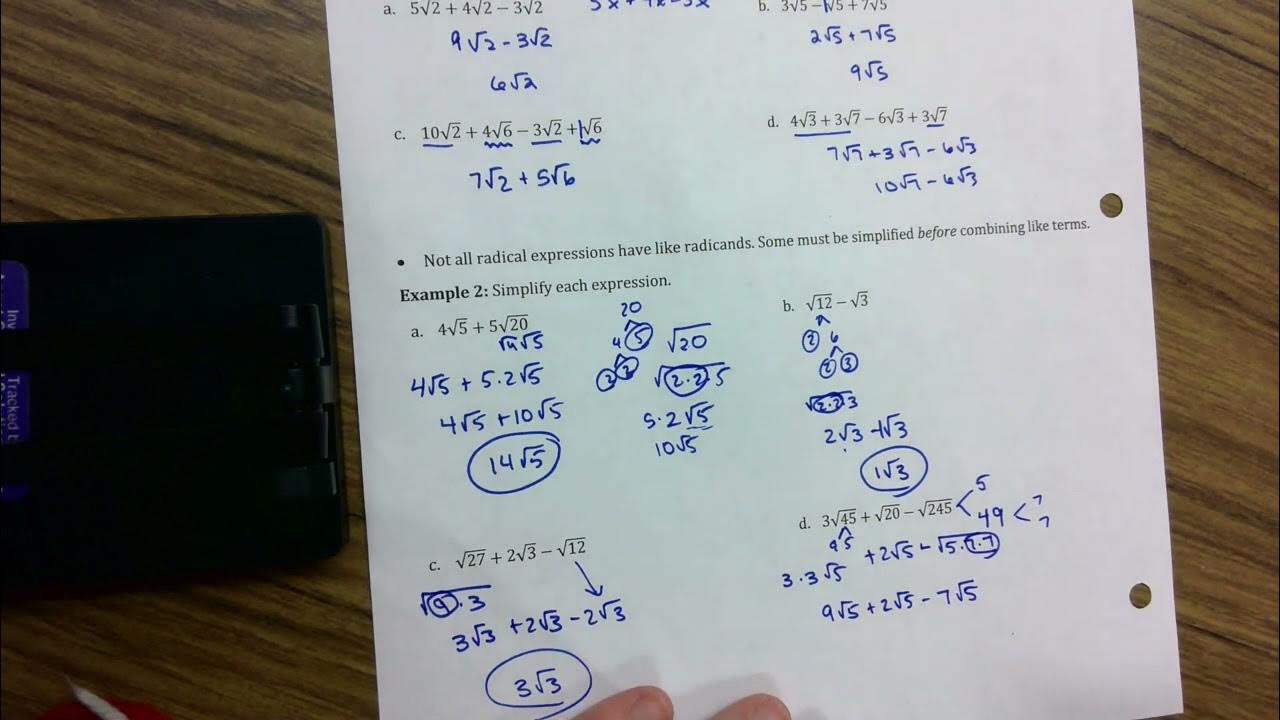 a. 5√2 + 4√2 − 3√2
9√2 - 3√2
6√2
b. 3√5 − 1√5 + 7√5
2√5 + 7√5
9√5
c. 10√2 + 4√6 − 3√2 + 1√6
7√2 + 5√6
d. 4√3 + 3√7 − 6√3 + 3√7
7√7 + 3√7 - 6√3
10√7 - 6√3
• Not all radical expressions have like radicands. Some must be simplified before combining like terms.
Example 2: Simplify each expression.
a. 4√5 + 5√20
√4√5
4√5 + 5·2√5
4√5 + 10√5
14√5
20
4 5
2 2
√20
√2·2·5
5·2√5
10√5
b. √12 − √3
2 6
2 3
√2·2·3
2√3 - 1√3
1√3
c. √27 + 2√3 − √12
√9·3
3√3 + 2√3 - 2√3
3√3
d. 3√45 + √20 − √245 < 5
49 < 7
7
9 5
3·3√5 + 2√5 - √5·7·7
9√5 + 2√5 - 7√5
Inv
Tracked